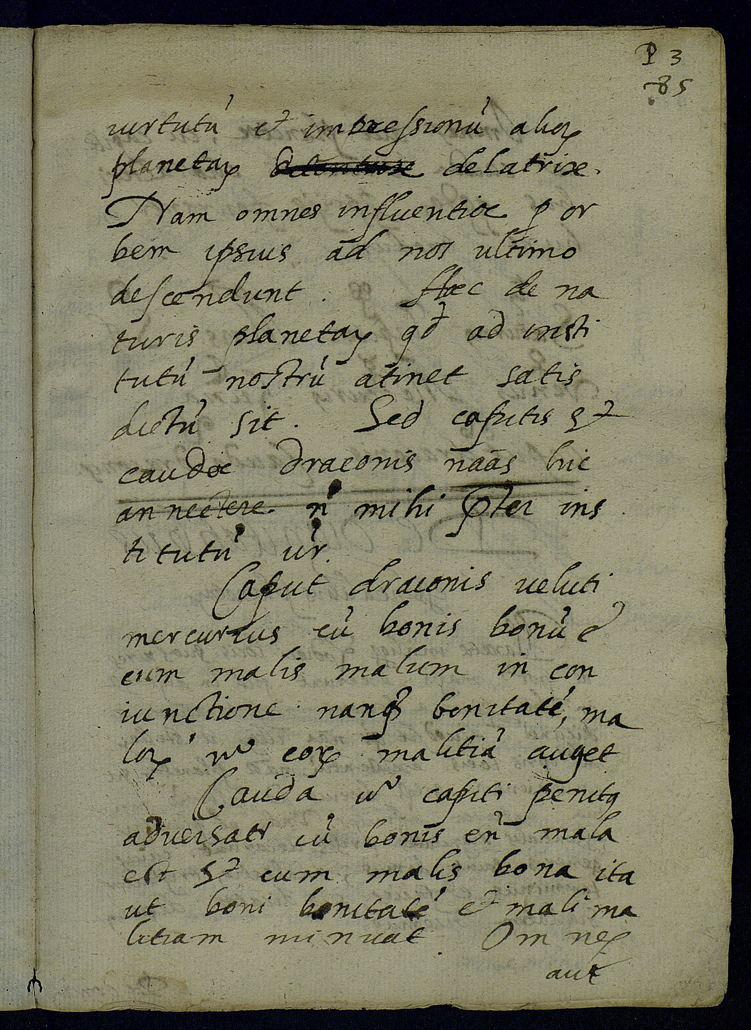 P 3
85
virtutū et impressionū alioꝝ
planetaꝝ delatrix.
Nam omnes influentiae ꝑ or
bem ipsius ad nos ultimo
descendunt. Haec de na
turis planetaꝝ qd̄ ad insti
tutū nostrū atinet satis
dictū sit. Sed capitis et
caudae draconis nāas huic
annectere n̄ mihi ꝓter ins
titutū vr̄.
Caput draconis veluti
mercurius cū bonis bonū ē
cum malis malum in con
iunctione nanqꝫ bonitatē, ma
loꝝ v̊ eoꝝ malitiā auget
Cauda v̊ capiti penitꝰ
adversatr cū bonis en̄ mala
est et cum malis bona ita
ut boni bonitatē et mali ma
litiam minuat. Omneꝫ
aut